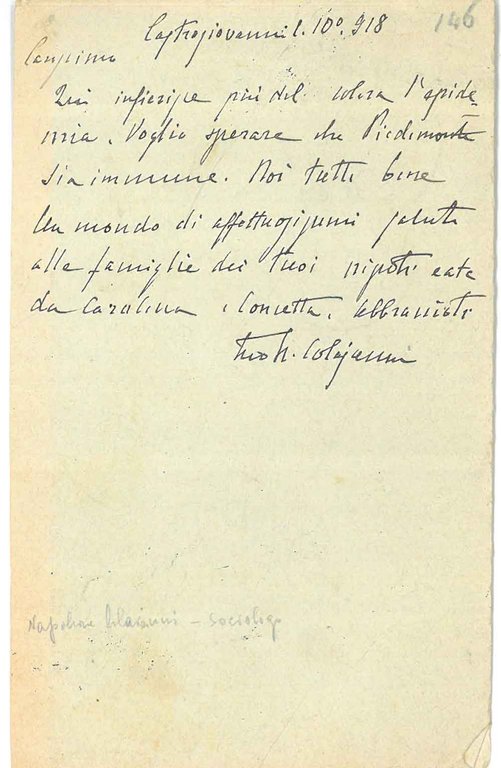 146
Castrogiovanni 1. 10º. 918
Carissimo
Qui infierisce più del colera l'epide-
mia. Voglio sperare che Piedimonte
sia immune. Noi tutti bene
Un mondo di affettuosissimi saluti
alle famiglie dei tuoi nipoti e a te
da Carolina e Concetta. Abbracciati
tuo N. Colajanni
Napoleone Colaianni - sociologo